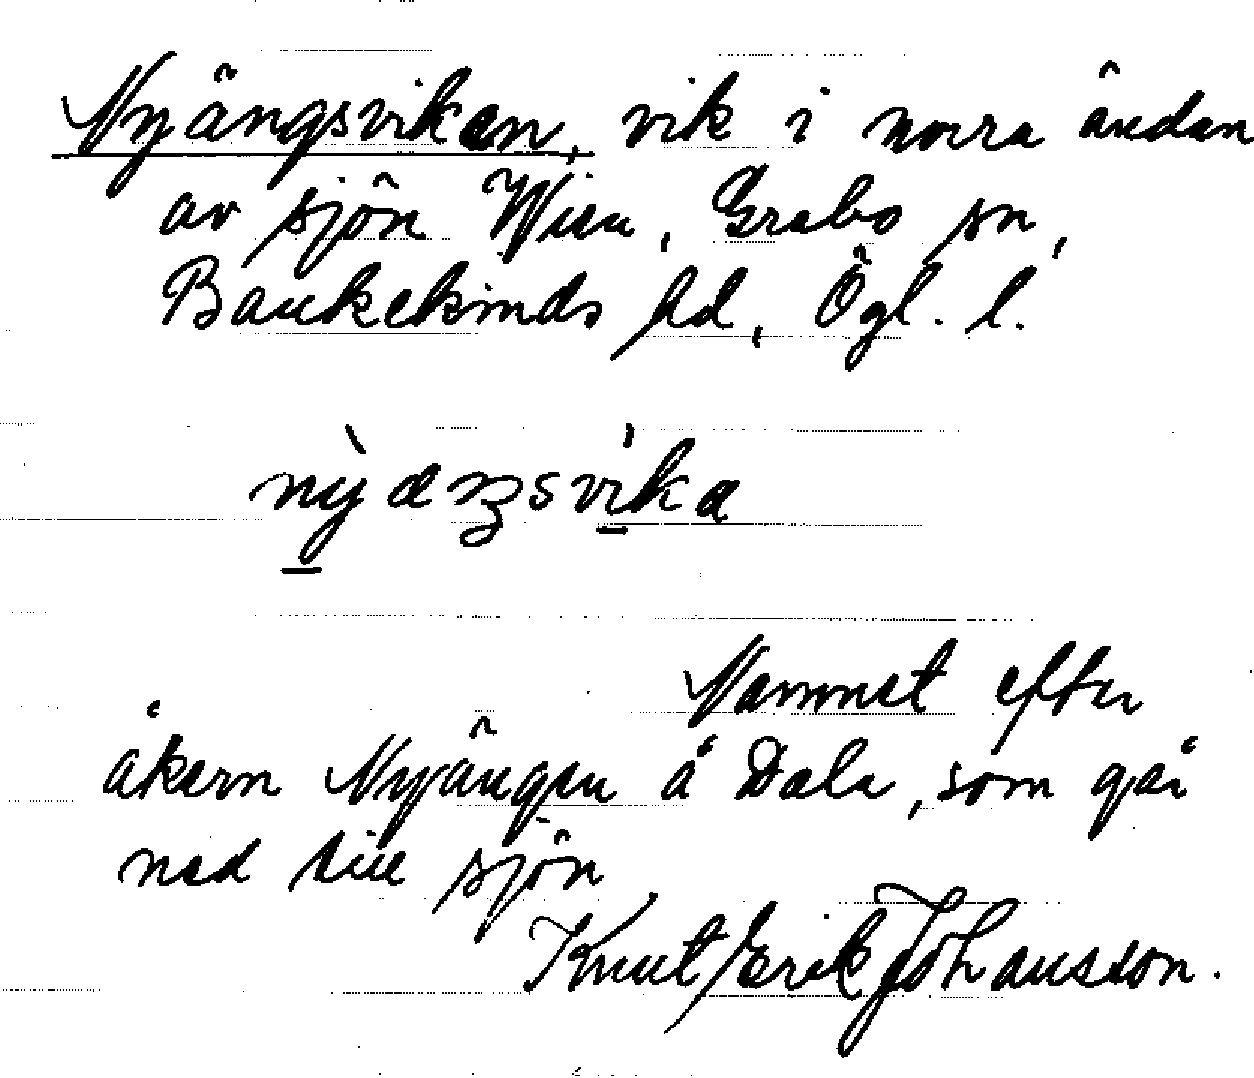 Nyängsviken, vik i norra ändan
av sjön Wien, Grebo sn,
Bankekinds hd, Ögl. l.
nỳæŋsvika
Namnet efter
åkern Nyängen å Dala, som går
ned till sjön
Knut Erik Johansson.